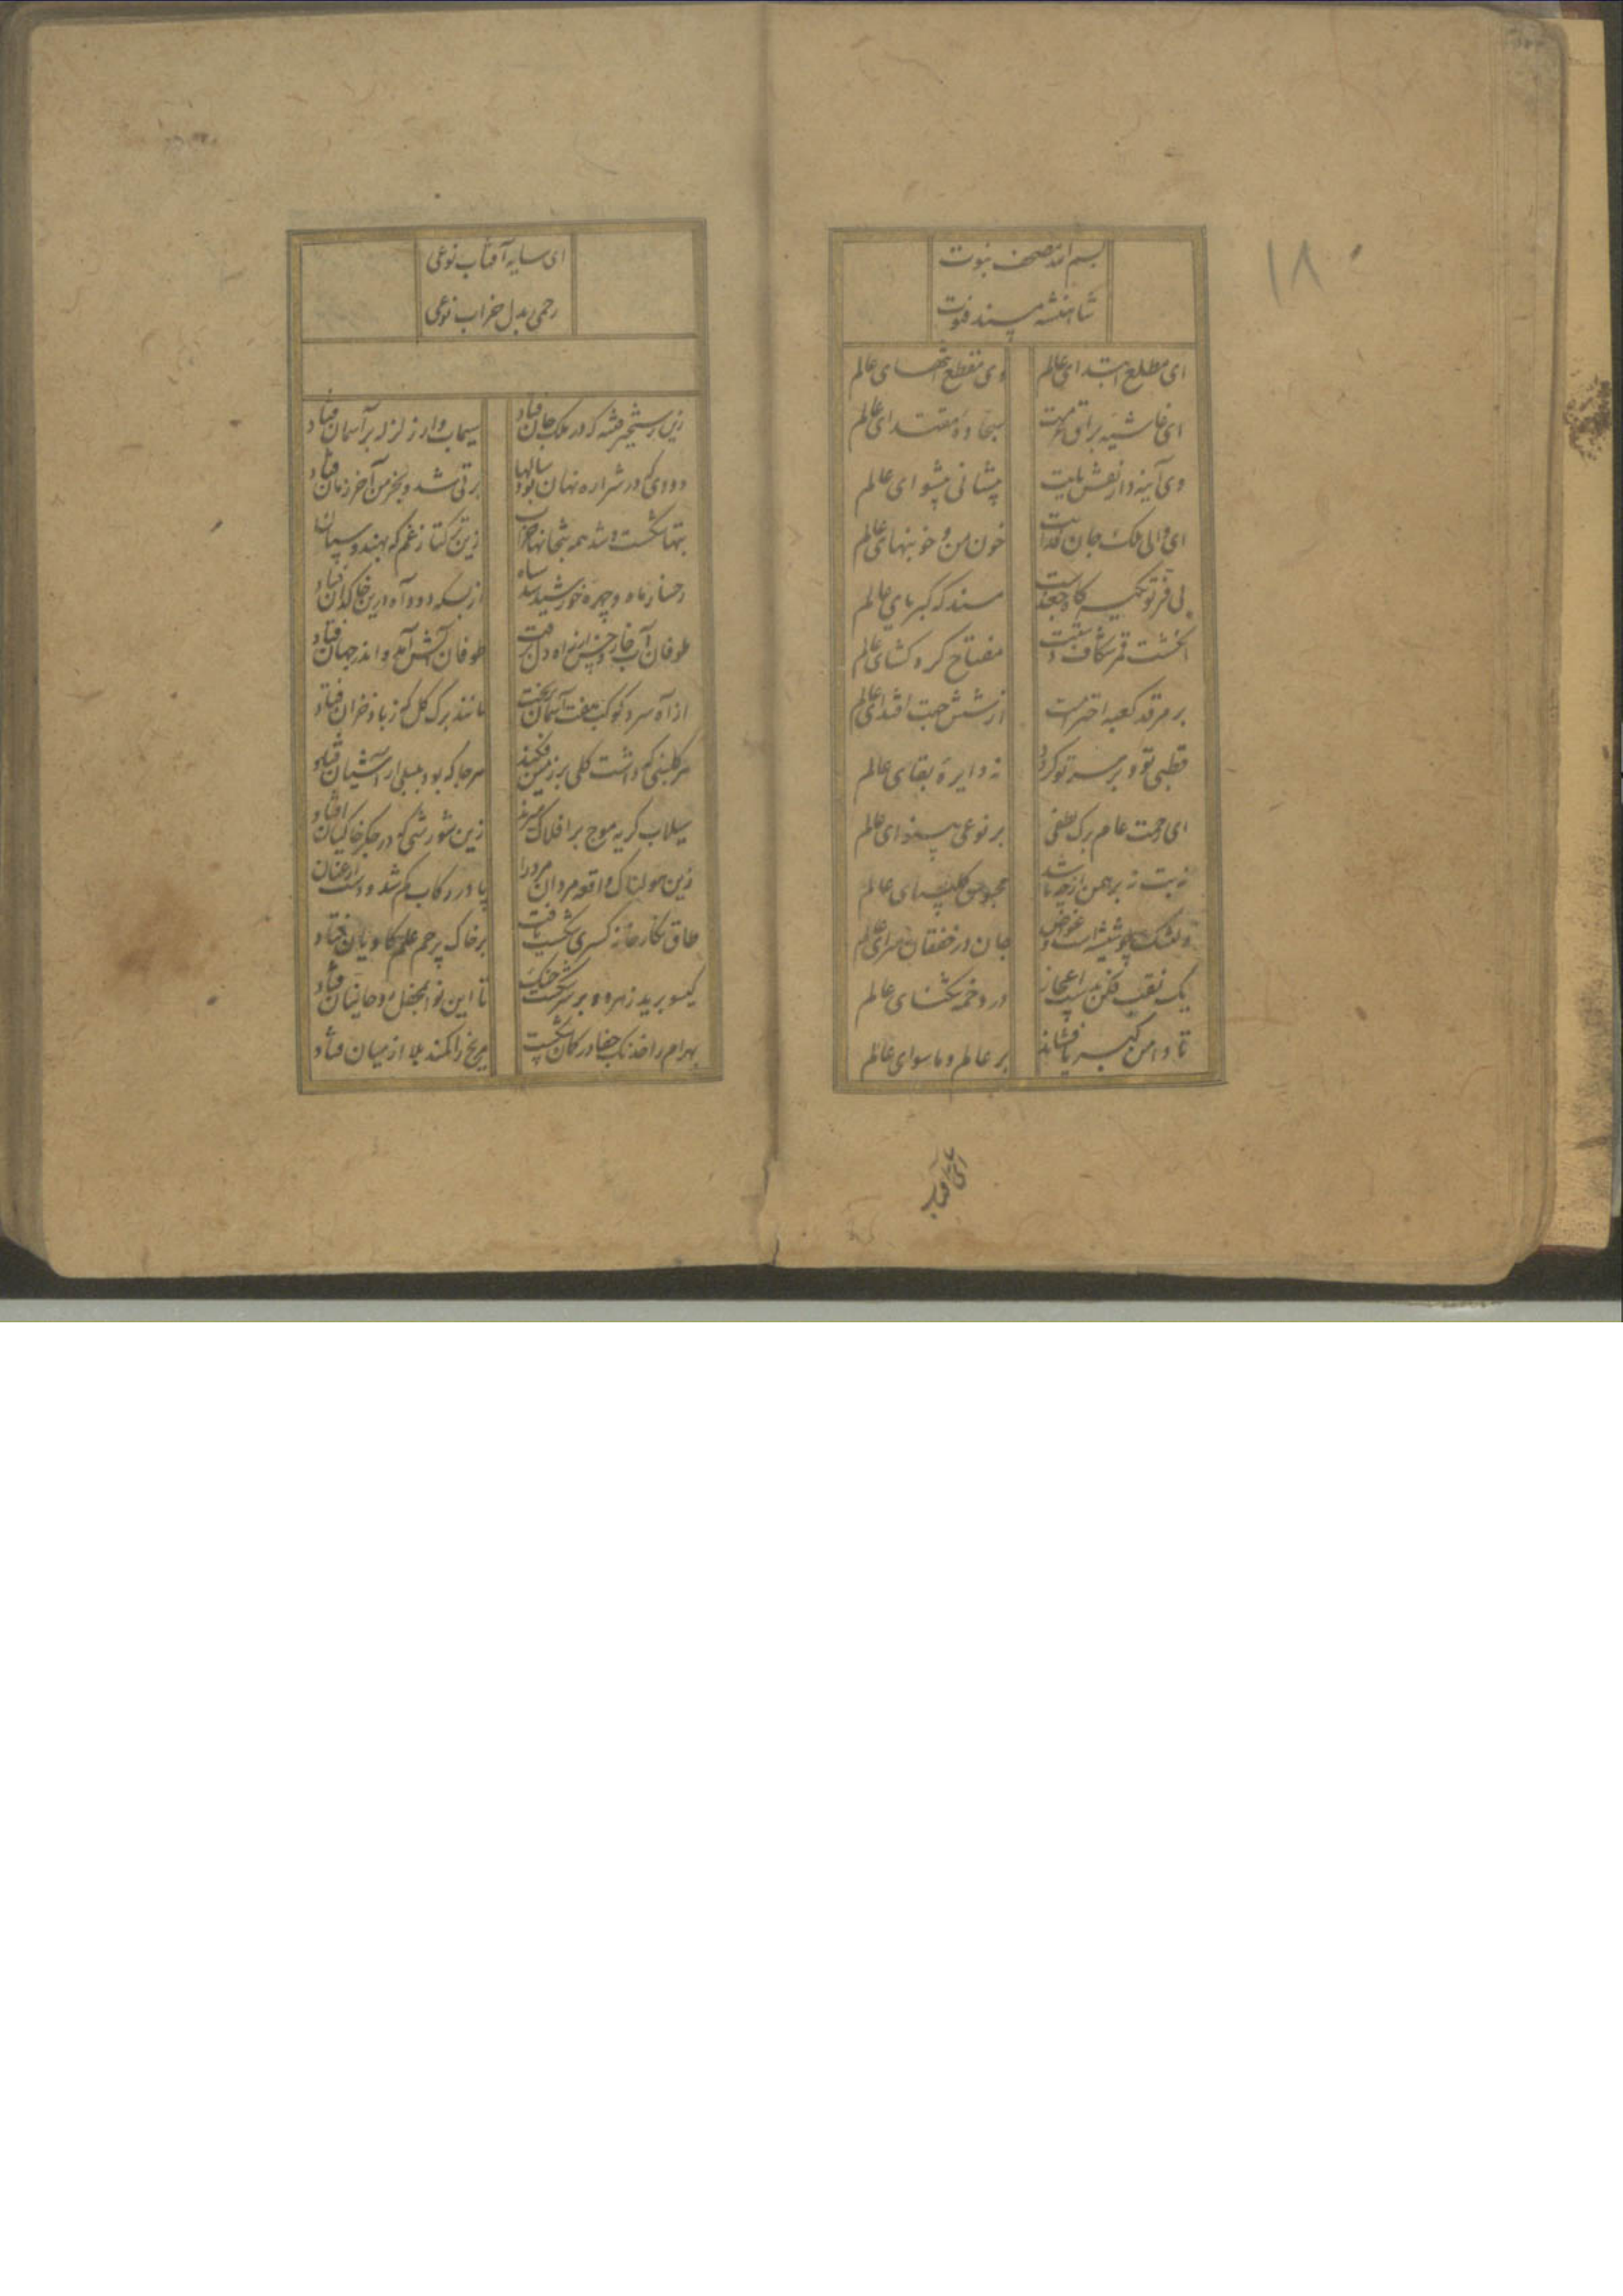 ۱۸۰
بسم الله مصحف نبوت
شاهنشه مسند فتوت
ای مطلع ابتدای عالم وی مقطع انتهای عالم
ای غاشیه براق عزمت سجاده مقتدای عالم
وی آینه دار نقش پایت پیشانی پیشوای عالم
ای والی ملک جان فدایت خون من و خونبهای عالم
بی فر تو تکیه گاه جغدست مسند که کبریای عالم
انگشت قمر شکاف دستت مفتاح گره کشای عالم
بر مرقد کعبه احترامت از شش جهت اقتدای عالم
قطبی تو و بر سر تو گردد نه دایره بقای عالم
ای رحمت عام برگ لطفی بر نوعی بینوای عالم
نه بت نه برهمن از چه باشد محبوس کلیسیای عالم
جان در خفقان سرای عالم
یک نقب فکن به سیب اعجاز در دخمه تنگنای عالم
تا دامن کبریا فشاند بر عالم و ماسوای عالم
ای سایه آفتاب
ای سایه آفتاب نوعی
رحمی بدل خراب نوعی
زین رستخیز فتنه که در ملک جان فتاد سیماب وار زلزله بر آسمان فتاد
دودی که در شراره نهان بود سالها برقی شد و بخرمن آخر زمان فتاد
بتها شکست و شد همه بتخانها خراب زین ترکتاز غم که بهندوستان فتاد
رخسار ماه و چهره خورشید شد سیاه از بسکه دود آه درین خاکدان فتاد
طوفان آب خار و خس از راه دل برفت طوفان آتش آمد و اندر جهان فتاد
از آه سرد کوکب هفت آسمان بریخت مانند برگ گل که ز باد خزان فتاد
هر گلبنی که داشت گلی بر زمین فکند هرجا که بود بلبلی از آشیان فتاد
سیلاب گریه موج بر افلاک میزند زین شورشی که در جگر خاکیان افتاد
زین هولناک واقعه مردان مرد را پا در رکاب گم شد و دست از عنان فتاد
طاق نگارخانه کسری شکست یافت بر خاک پرچم علم کاویان فتاد
گیسو برید زهره و بر سر شکست چنگ تا این نوا بمحفل روحانیان فتاد
بهرام را خدنگ جفا در کمان شکست مریخ را کمند بلا از میان فتاد